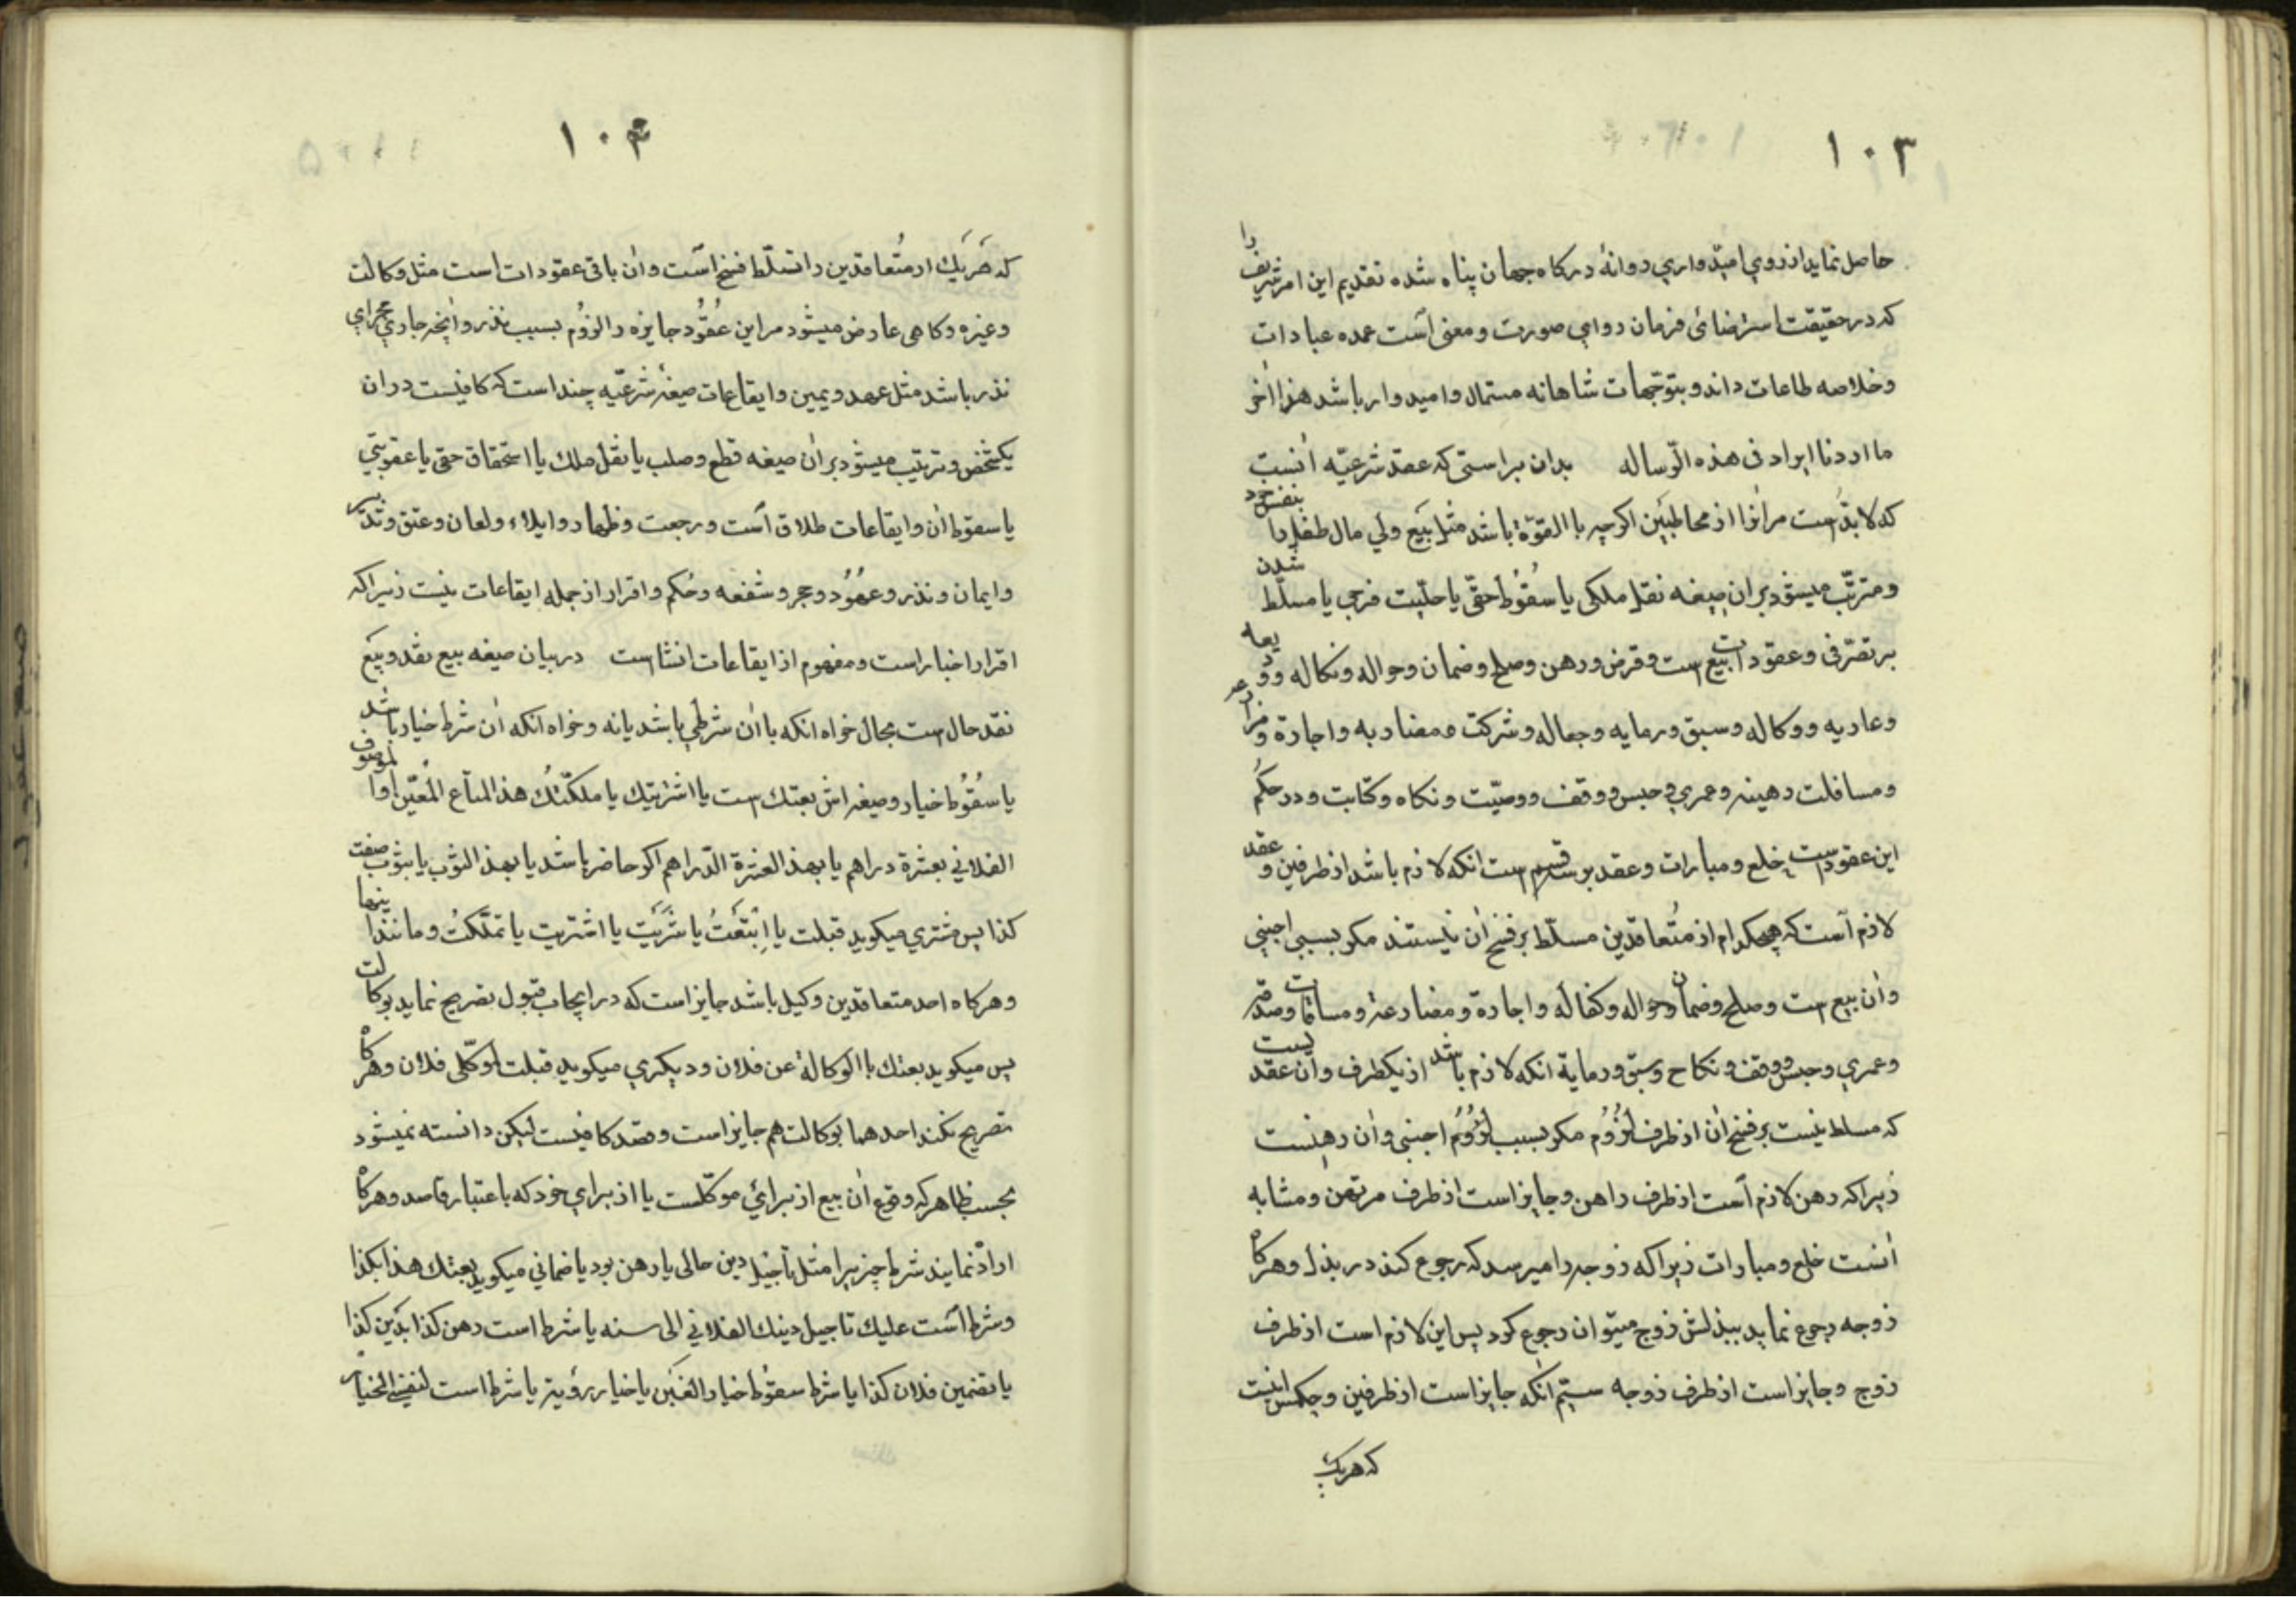 ۱۰۳
حاصل نماید از روی امیدواری روانهٔ درکاه جهان پناه شده تقدیم این امر شریف را
که در حقیقت استرضائی فرمان روایی صورت و معنی است عمده عبادات
وخلاصه طاعات داند و بتوجهات شاهانه مستمال وامیدوار باشد هذا آخر
ما اردنا ایراد فی هذه الرساله بدان براستی که عقد شرعیّه آنست
که لابدّست مرانرا از مخاطبین اکرچه باالقوّة باشد مثل بَیع ولي مال طفل را بنفس خود
ومترتّب میشود بران صیغه نقل ملکی یا سُقُوط حقّي یا حلّیت فرجي یا مسلّط شدن
بر تصرّفی وعقودات بیع ست وقرض ورهن وصلح وضمان وحواله ونکاله وودیعه
وعاریه ووکاله وسبق ورمایه وجعاله وشرکت ومضاربه واجارة ومزارعه
ومساقلت رهینه وعمري وحبس ووقف ووصیّت ونکاه وکتابت ودر حکُم
این عقودست خلع ومبارات وعقد بر سه قسم ست انکه لازم باشد از طرفین وعقد
لازم آست که هیچکدام از متُعاقدین مسلّط بر فسخ آن نیستند مکر بسببی اجنبي
وآن بیع ست وصلح وضمان وحواله وکفاله واجارة ومضارعة ومساقات وصدقه
وعمري وحبس ووقف ونکاح وسبق ورمایة انکه لازم باشد از یکطرف وآن عقدیست
که مسلط نیست بر فسخ آن از طرف لُزُوُم مکر بسبب لُزُوُم اجنبی وآن رهنست
زیراکه رهن لازم آست از طرف راهن وجایز است از طرف مرتهن ومشابه
آنست خلع ومبارات زیراکه زوجه را میرسد که رجوع کند در بذل وهرکاه
زوجه رجوع نماید ببذلش زوج میتوان رجوع کرد پس این لازم است از طرف
زوج وجایز است از طرف زوجه سیّم آنکه جایز است از طرفین وحکمش اینست
که هریک
۱۰۴
که هَریَك از متُعاقدین را تسلّط فسخ است وان باقی عقودات است مثل وکالت
وغیره وکاهی عارض میشود مر این عُقُود جایزه را لزوُم بسبب نذر وآنچه جاري مجراي
نذر باشد مثل عهد ویمین وایقاعات صیغهٔ شرعیّه چند است که کافیست دران
یکشخص وترتیب میشود بران صیغه قطع وصلب یا نقل ملك یا استحقاق حقی یا عقوبتي
یا سقوط ان وایقاعات طلاق آست ورجعت وظهار وایلاء ولعان وعتق وتدبیر
وایمان ونذر وعهُوُد وحجر وشفعه وحُکم واقرار از جمله ایقاعات نیست زیراکه
اقرار اخبار است ومفهوم از ایقاعات انشاست در بیان صیغه بیع نقد وبیَع
نقد حال ست بحال خواه انکه باآن شرطي باشد یانه وخواه انکه آن شرط خیار باشد
یا سُقُوط خیار وصیغه اش بعتك ست یا اشریتك یا ملکّتُكُ هذا المتآع المُعیّن اوالموصوف
الفلاني بعشرة دراهم یا بهذا العشرة الدّراهم اکر حاضر باشد یا بهذ الثوب یا بثوب صفت
کذا پس مشتري میکوید قبلت یا اِبْتَعَتُ یا شَرَیَت یا اشتریت یا تملّکتُ ومانند اینها
وهرکاه احد متعاقدین وکیل باشد جایز است که در ایجاب قبول تصریح نماید بوکالت
پس میکوید بعتك باالوکالة عن فلان ودیکري میکوید قبلت لموکّلی فلان وهرکاه
تصریح نکند احدهما بوکالت هم جایز است وقصد کافیست لیکن دانسته نمیشود
بحسب ظاهر که وقوع آن بیع از برائي موکّلست یا از براي خود که باعتبار قاصد وهرکاه
ارادّ نمایند شرط چیزیرا مثل تأجیل دین حالی یا رهن بود یا ضماني میکوید بعتك هذا بکذا
وشرط آست علیك تاجیل دینك الفلاني الی سنه یا شرط است رهن کذا بدَین کذا
یا تضمین فلان کذا یا شرط سقوُط خیار الغبَن یا خیار رؤیته یا شرط است لنفسی الخیار